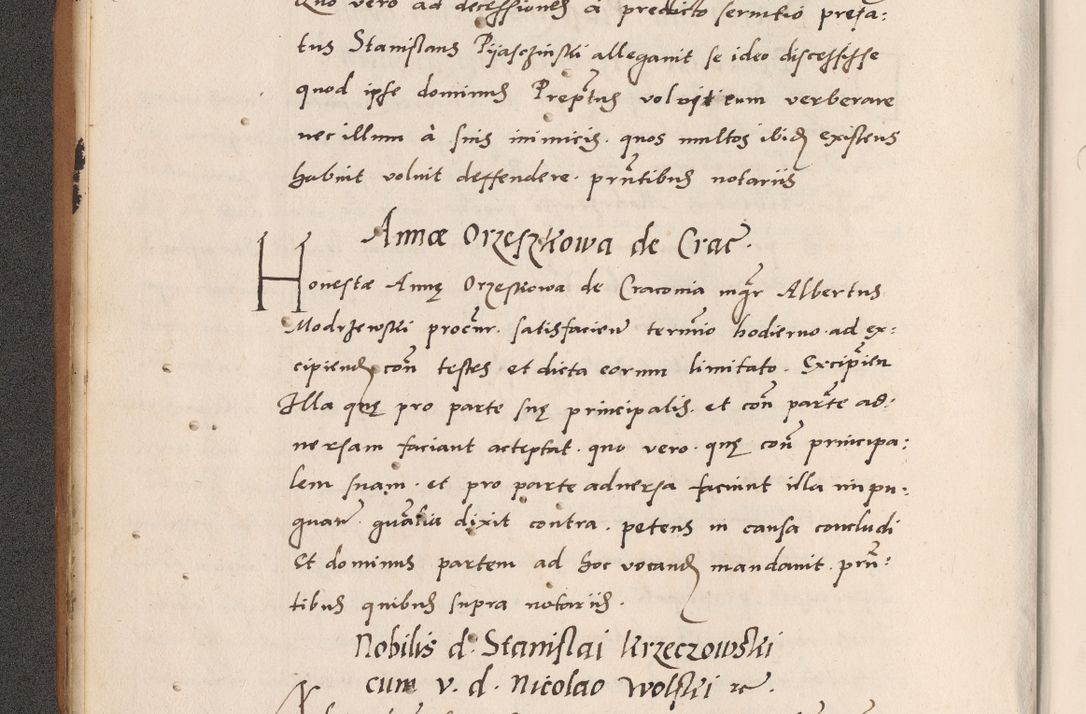 Quo vero ad decessionem à predicto servitio prefa:
tus Stanislaus Pijaschinski allegavit se ideo discessisse
quod ipse dominus Prepntus voluit eum verberare
nec illum à suis inimicis. quos multos ibid existens
habuit voluit deffendere. prntibus notariis
Annæ Orzeszkowa de Crac.
Honestæ Annę Orzeskowa de Cracovia mgr Albertus
Modrzewski procur. satisfacien termio hodierno. ad ex:
cipiend con testes et dicta eorum limitato. Excipien
Illa quę pro parte suę principalis. et con parte ad:
versam faciunt acceptat. quo vero. quę con principa:
lem suam. et pro parte adversa faciunt illa impu:
gnan. gnalia dixit contra. petens in causa concludi
Et dominus partem ad hoc vocand mandavit. prn:
tibus quibus supra notariis.
Nobilis d. Stanislai Krzeczowski
cum v. d. Nicolao Wolski rc.